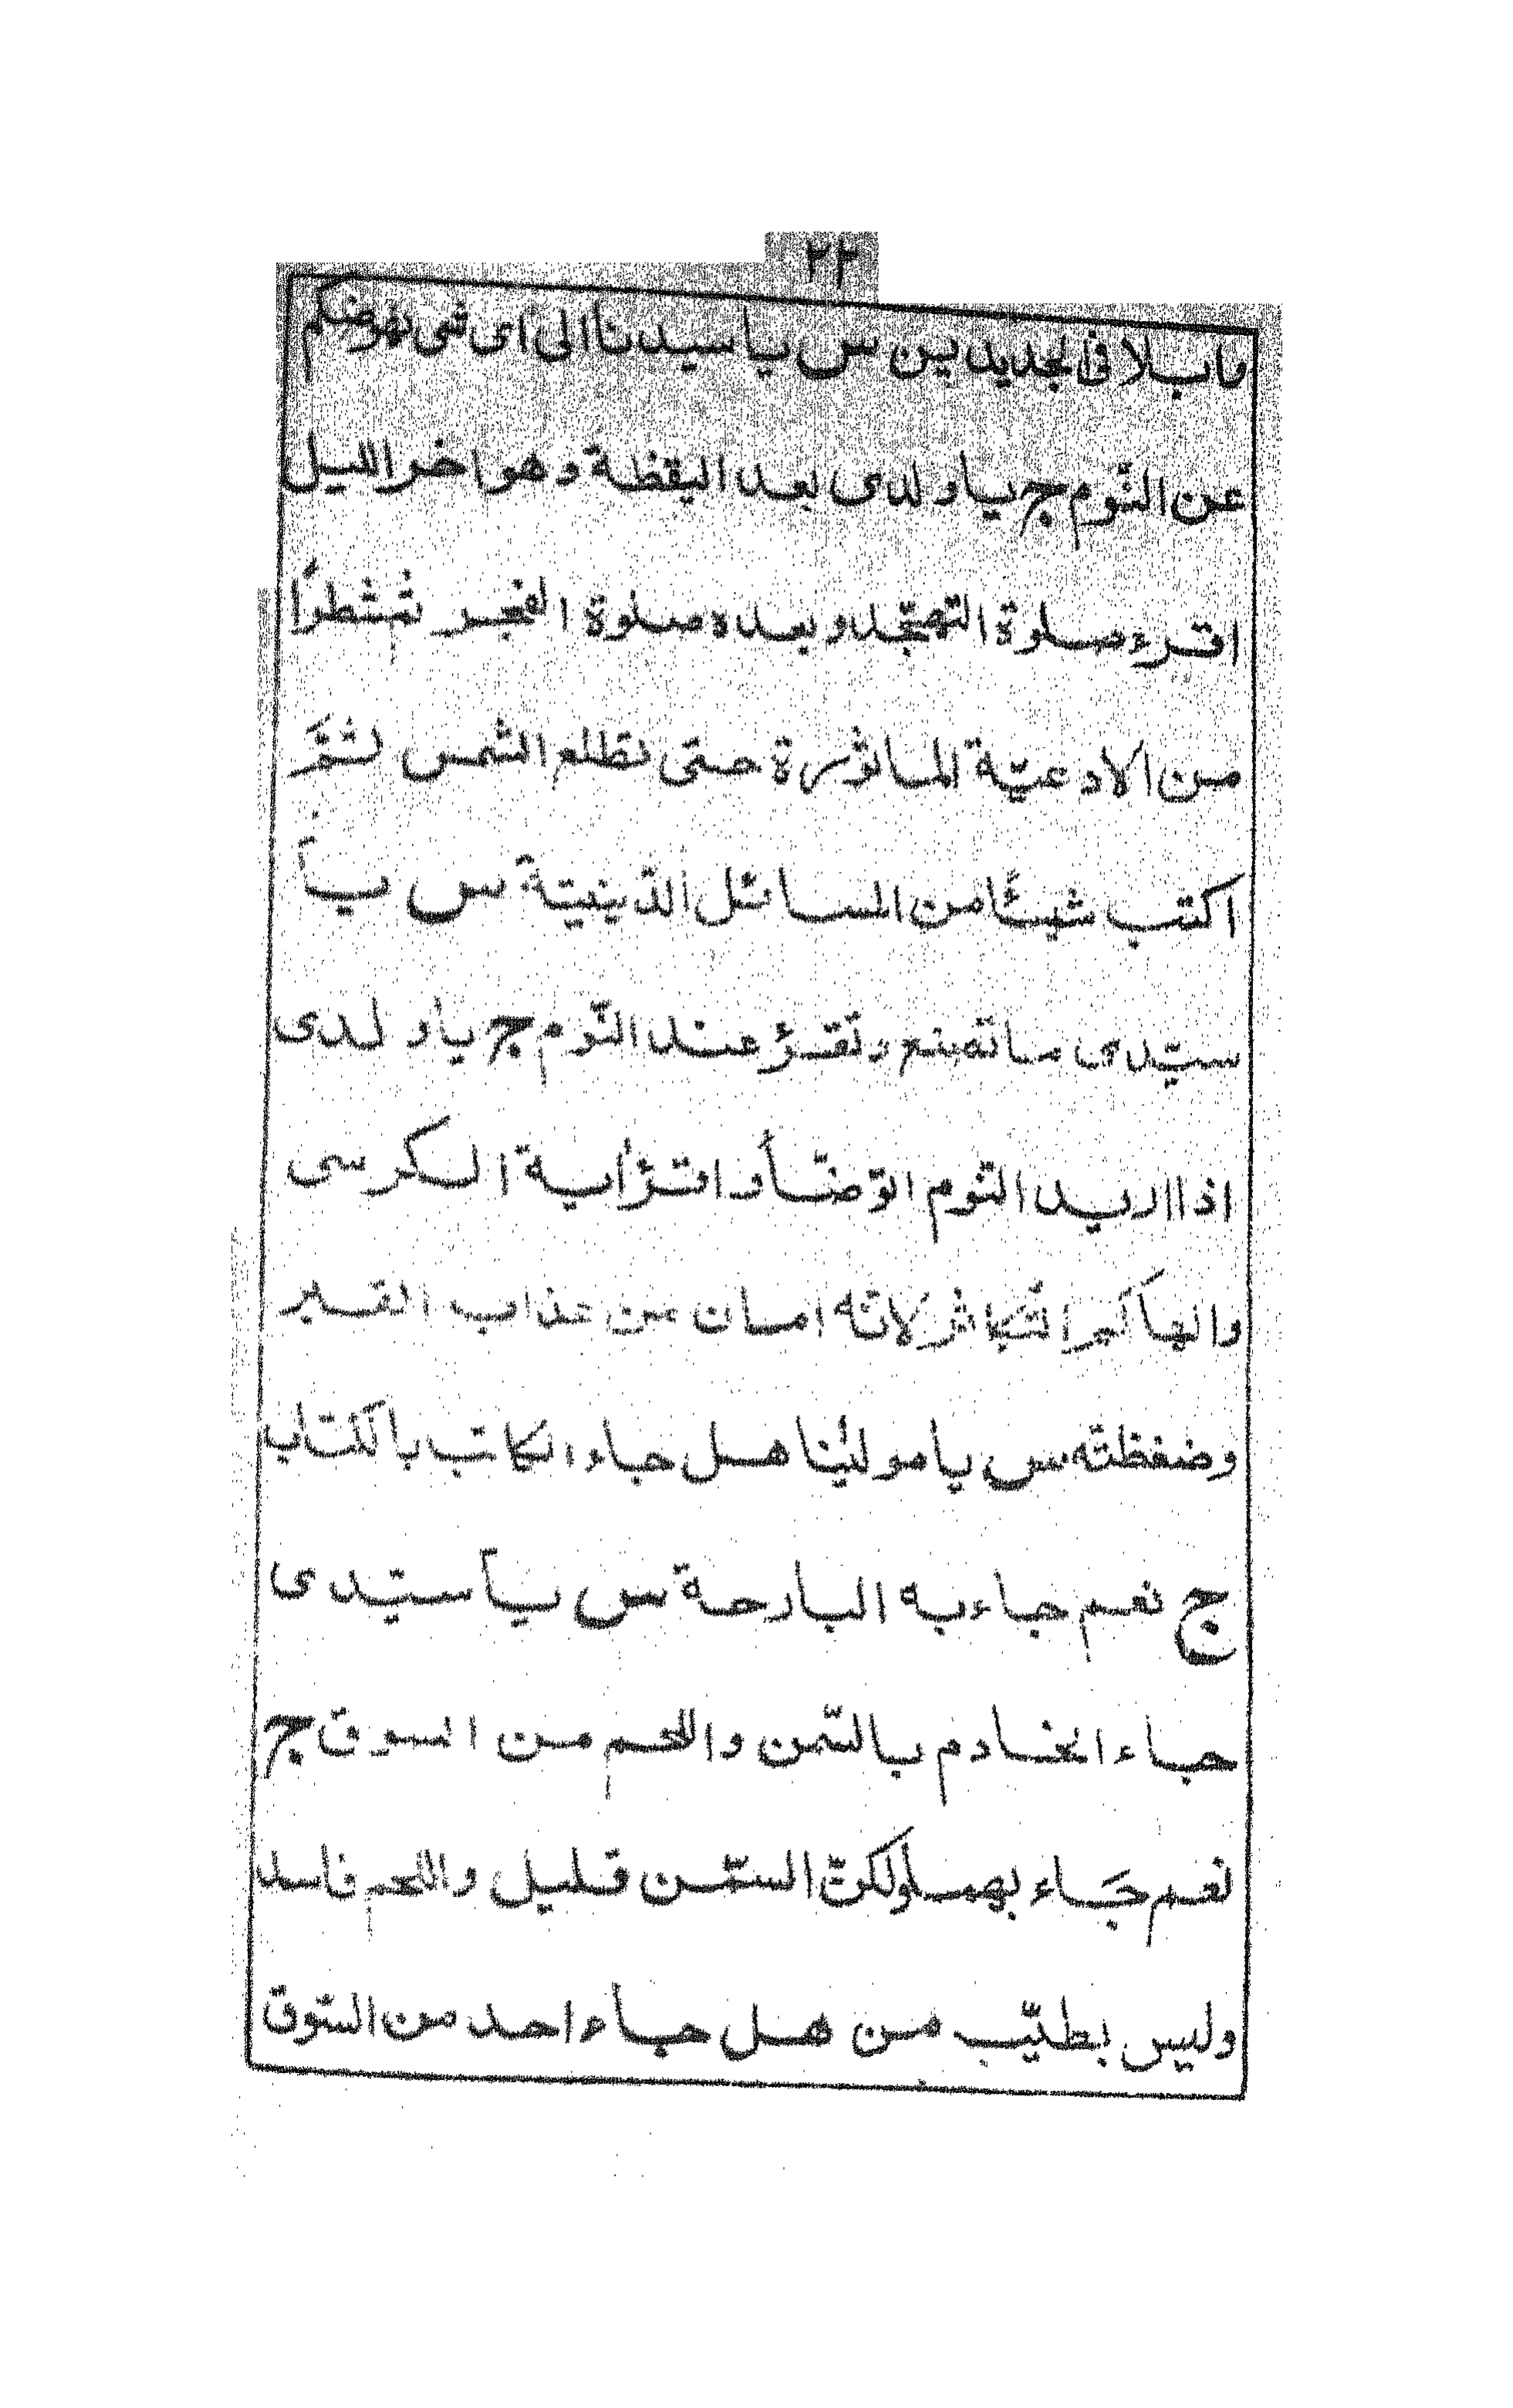 ٢٢
ما بلا فى الجديدين س يا سيدنا الى اى شى نهوضكم
عن النّوم ج يا ولدى بعد اليقظة وهو اخر الليل
اقرء صلوة التهجّد وبعده صلوة الفجر ثم شطرًا
من الادعيّة الماثورة حتى تطلع الشمس ثمّ
اكتب شيئًا من المسائل الدّينيّة س يا
سيّدى ما تصنع وتقرؤ عند النّوم ج يا ولدى
اذا اريد النّوم اتوضّأ و اقرؤ أية الكرسى
والهاكم التّكاثر لانّه امان من عذاب القبر
وضغظته س يا مولينا هل جاء الكاتب بالكتاب
ج نعم جاء به البارحة س يا سيّدى
جاء الخادم بالسّمن واللحم من السوق ج
نعم جاء بهما ولكنّ السّمن قليل واللحم فاسد
وليس بطيّب من هل جاء احد من السّوق